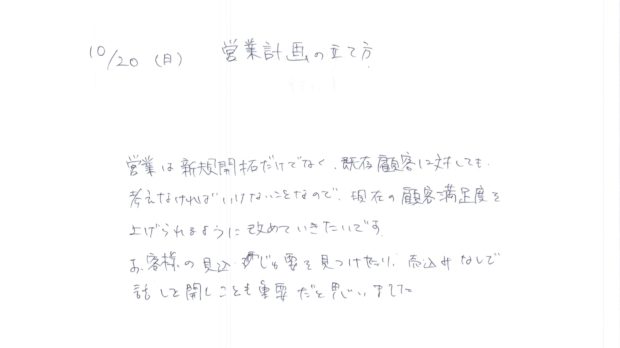 10/20（月）　営業計画の立て方
営業は新規開拓だけでなく、既存顧客に対しても
考えなければいけないことなので、現在の顧客満足度を
上げられるように改めていきたいです
お客様の見込 必要を見つけたり、売込みなしで
話しを聞くことも重要だと思いました